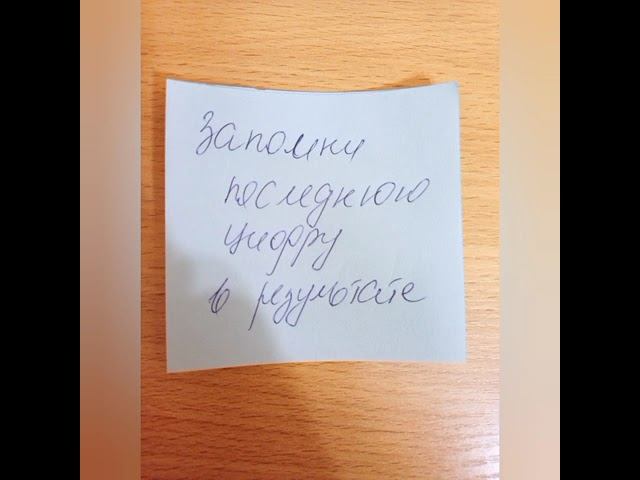 Запомни
последнюю
цифру
в результате